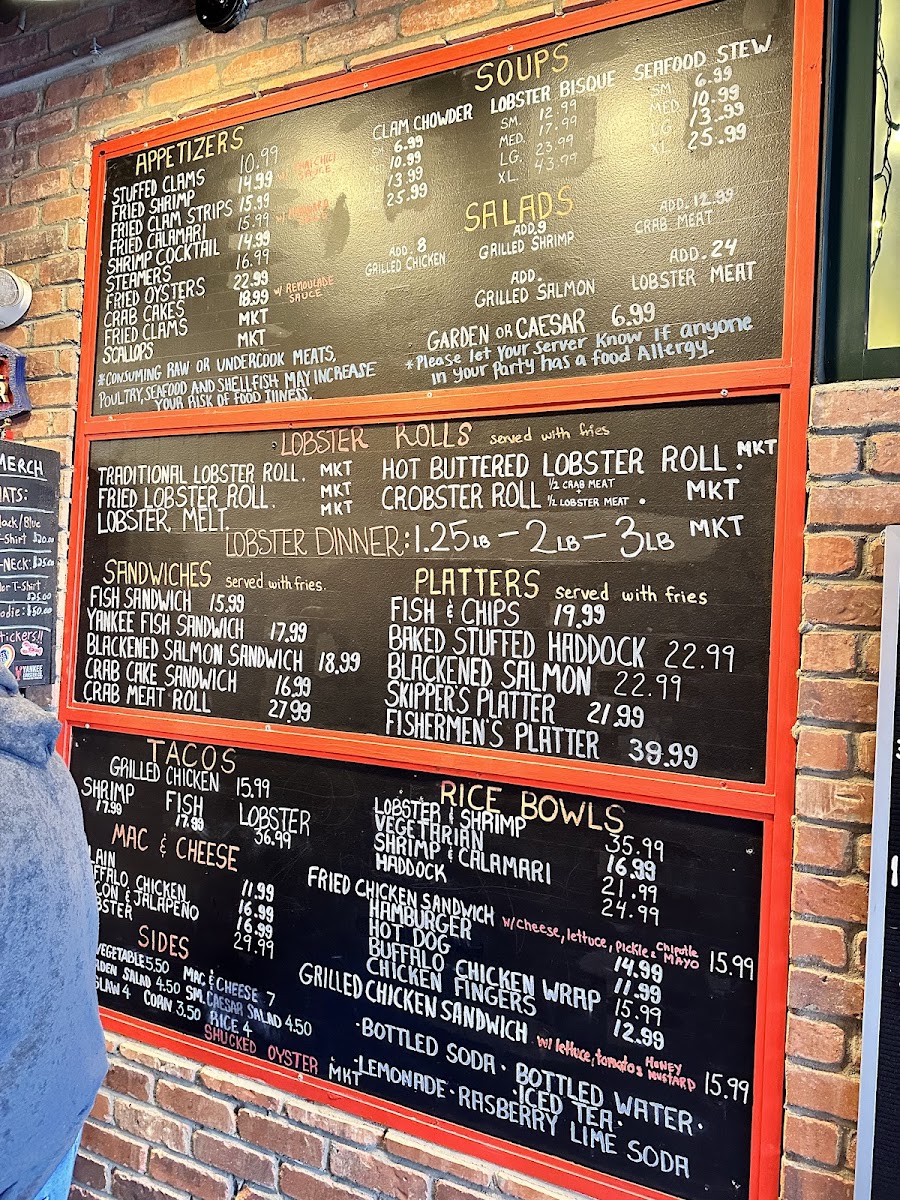 APPETIZERS
STUFFED CLAMS 10.99
FRIED SHRIMP 14.99
FRIED CLAM STRIPS 15.99
FRIED CALAMARI 15.99
SHRIMP COCKTAIL 14.99
STEAMERS 16.99
FRIED OYSTERS 22.99
CRAB CAKES 18.99 w/ REMOULADE SAUCE
FRIED CLAMS MKT
SCALLOPS MKT
*CONSUMING RAW OR UNDERCOOK MEATS,
POULTRY, SEAFOOD AND SHELLFISH MAY INCREASE
YOUR RISK OF FOOD ILLNESS.
SOUPS
CLAM CHOWDER
6.99
10.99
13.99
25.99
LOBSTER BISQUE
SM. 12.99
MED. 17.99
LG. 23.99
XL. 43.99
SEAFOOD STEW
SM. 6.99
MED. 10.99
LG. 13.99
XL. 25.99
SALADS
ADD. 8
GRILLED CHICKEN
ADD. 9
GRILLED SHRIMP
ADD. 12.99
CRAB MEAT
ADD.
GRILLED SALMON
ADD. 24
LOBSTER MEAT
GARDEN OR CAESAR 6.99
*Please let your server know If anyone
in your Party has a food Allergy.
LOBSTER ROLLS served with fries
TRADITIONAL LOBSTER ROLL. MKT
FRIED LOBSTER ROLL. MKT
LOBSTER MELT. MKT
HOT BUTTERED LOBSTER ROLL. MKT
CROBSTER ROLL 1/2 CRAB MEAT + 1/2 LOBSTER MEAT . MKT
LOBSTER DINNER: 1.25LB - 2LB - 3LB MKT
SANDWICHES served with fries.
FISH SANDWICH 15.99
YANKEE FISH SANDWICH 17.99
BLACKENED SALMON SANDWICH 18.99
CRAB CAKE SANDWICH 16.99
CRAB MEAT ROLL 27.99
PLATTERS served with fries
FISH & CHIPS 19.99
BAKED STUFFED HADDOCK 22.99
BLACKENED SALMON 22.99
SKIPPER'S PLATTER 21.99
FISHERMEN'S PLATTER 39.99
TACOS
GRILLED CHICKEN 15.99
SHRIMP
17.99
FISH
17.99
LOBSTER
36.99
MAC & CHEESE
LAIN 11.99
FFALO CHICKEN 16.99
CON & JALAPEÑO 16.99
BSTER 29.99
SIDES
VEGETABLE 5.50 MAC & CHEESE 7
DEN SALAD 4.50 SM. CAESAR SALAD 4.50
SLAW 4 CORN 3.50 RICE 4
SHUCKED OYSTER MKT
RICE BOWLS
LOBSTER & SHRIMP 35.99
VEGETARIAN 16.99
SHRIMP & CALAMARI 21.99
HADDOCK 24.99
FRIED CHICKEN SANDWICH w/ cheese, lettuce, pickle & Chipotle MAYO 15.99
HAMBURGER 14.99
HOT DOG 11.99
BUFFALO CHICKEN WRAP 15.99
CHICKEN FINGERS 12.99
GRILLED CHICKEN SANDWICH w/ lettuce, tomato & HONEY MUSTARD 15.99
·BOTTLED SODA · BOTTLED WATER ·
·ICED TEA ·
·LEMONADE · RASBERRY LIME SODA
MERCH
HATS:
lack/Blue
-Shirt $20.00
-NECK: $25.00
ler T-Shirt
$25.00
odie: $50.00
tickers!!
YANKEE